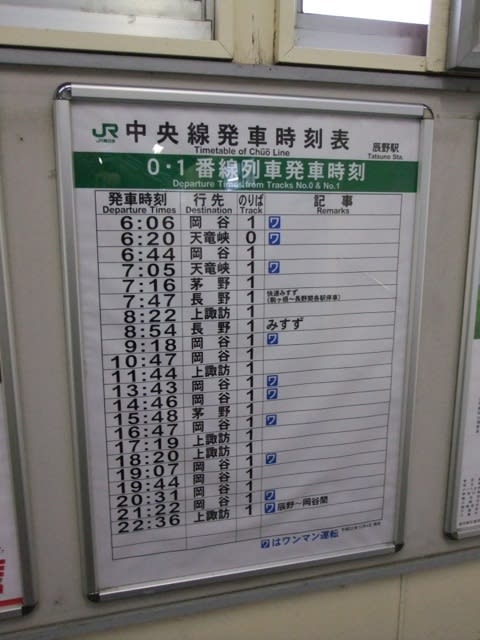 JR
JR東日本
中央線発車時刻表
Timetable of Chūō Line
辰野駅
Tatsuno Sta.
0・1 番線列車発車時刻
Departure Times from Tracks No.0 & No.1
発車時刻 行先 のりば 記事
Departure Times Destination Track Remarks
6:06 岡谷 1 ワ
6:20 天竜峡 0 ワ
6:44 岡谷 1
7:05 天竜峡 1 ワ
7:16 茅野 1
7:47 長野 1 快速みすず
(駒ヶ根〜長野間各駅停車)
8:22 上諏訪 1
8:54 長野 1 みすず
9:18 岡谷 1 ワ
10:47 岡谷 1
11:44 上諏訪 1
13:43 岡谷 1 ワ
14:46 岡谷 1 ワ
15:48 茅野 1
16:47 岡谷 1 ワ
17:19 上諏訪 1
18:20 上諏訪 1
19:07 岡谷 1 ワ
19:44 岡谷 1
20:31 岡谷 1
21:22 岡谷 1 ワ
22:36 上諏訪 1 ワ 辰野〜岡谷間
ワはワンマン運転